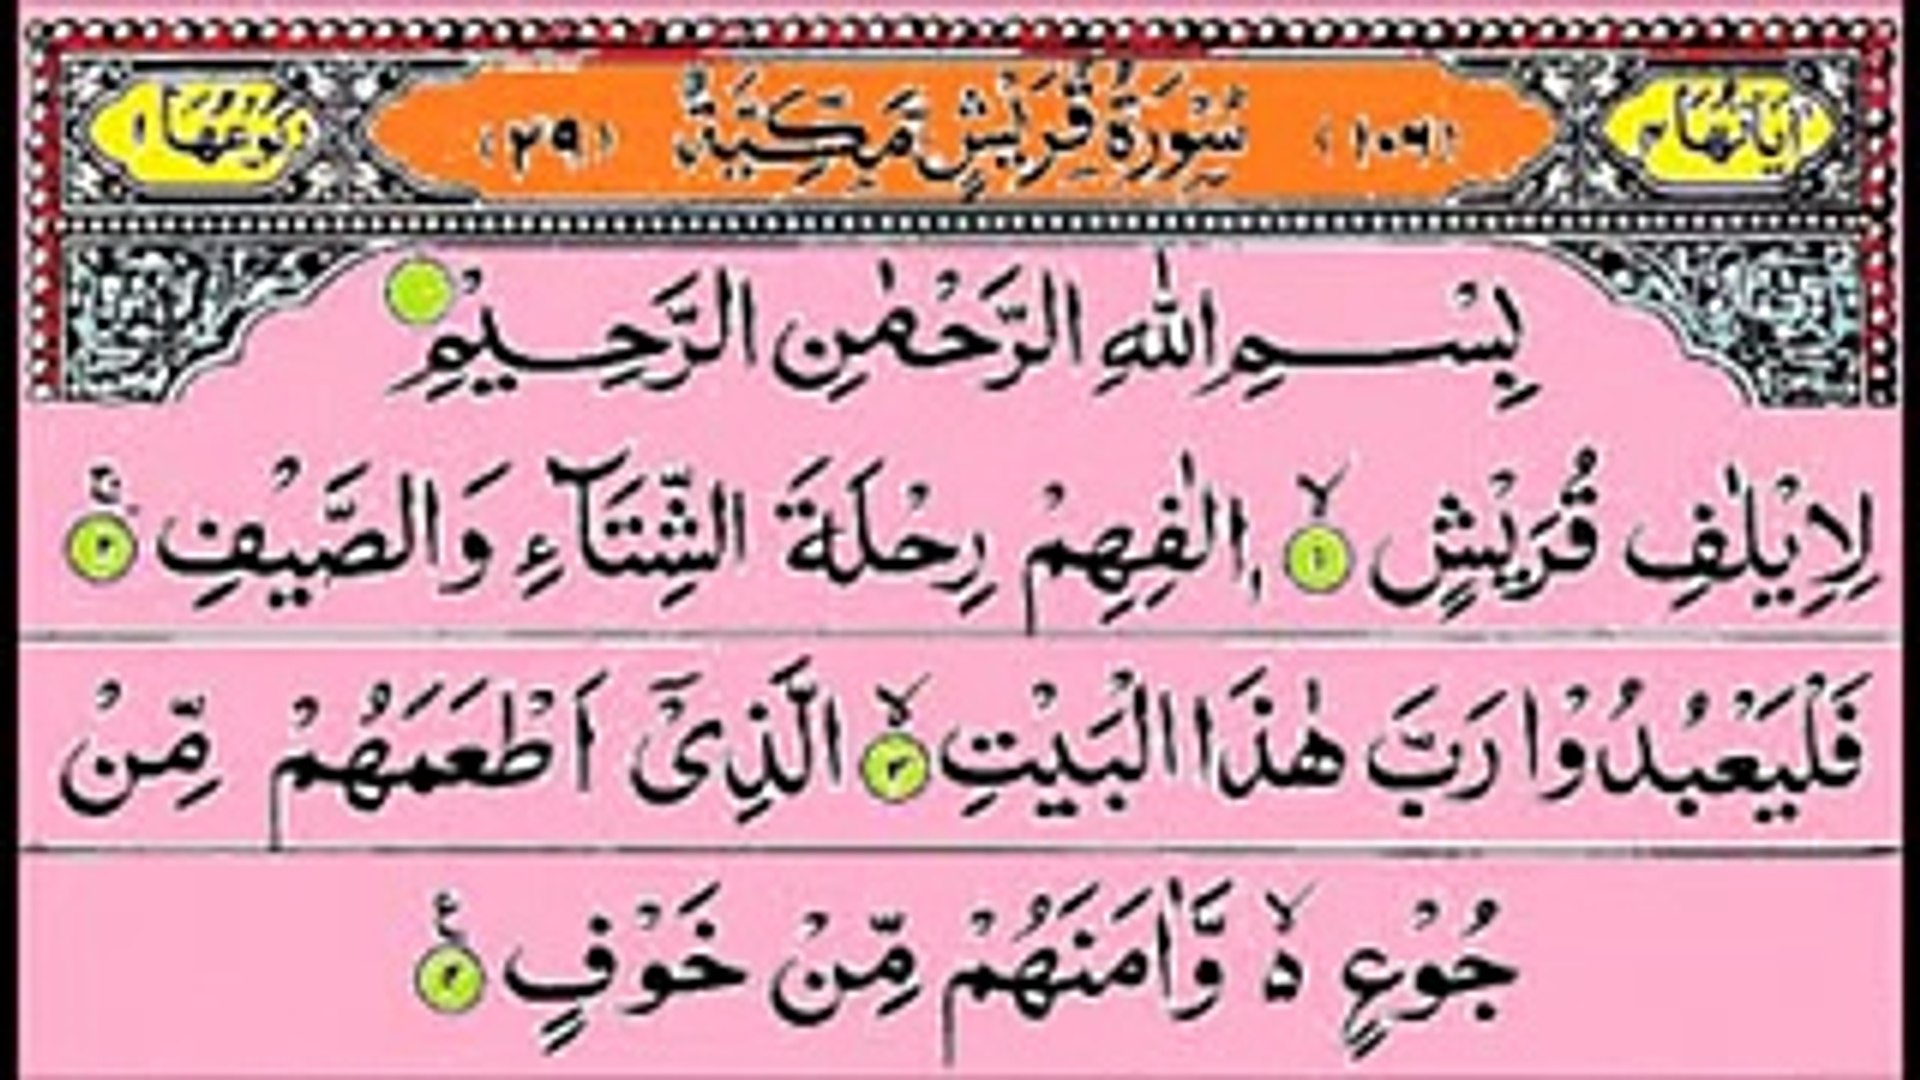 اٰيَاتُهَا ٤ (١٠٦) سُوْرَةُ قُرَيْشٍ مَكِّيَّةٌ (٢٩) رُكُوْعُهَا ١
بِسْمِ اللّٰهِ الرَّحْمٰنِ الرَّحِيْمِ
لِاِيْلٰفِ قُرَيْشٍ ۙ‏ ١ اٖلٰفِهِمْ رِحْلَةَ الشِّتَآءِ وَالصَّيْفِ ۚ ٢
فَلْيَعْبُدُوْا رَبَّ هٰذَا الْبَيْتِ ۙ ٣ الَّذِىْۤ اَطْعَمَهُمْ مِّنْ
جُوْعٍ ۙ ە وَّاٰمَنَهُمْ مِّنْ خَوْفٍ ٤ ع